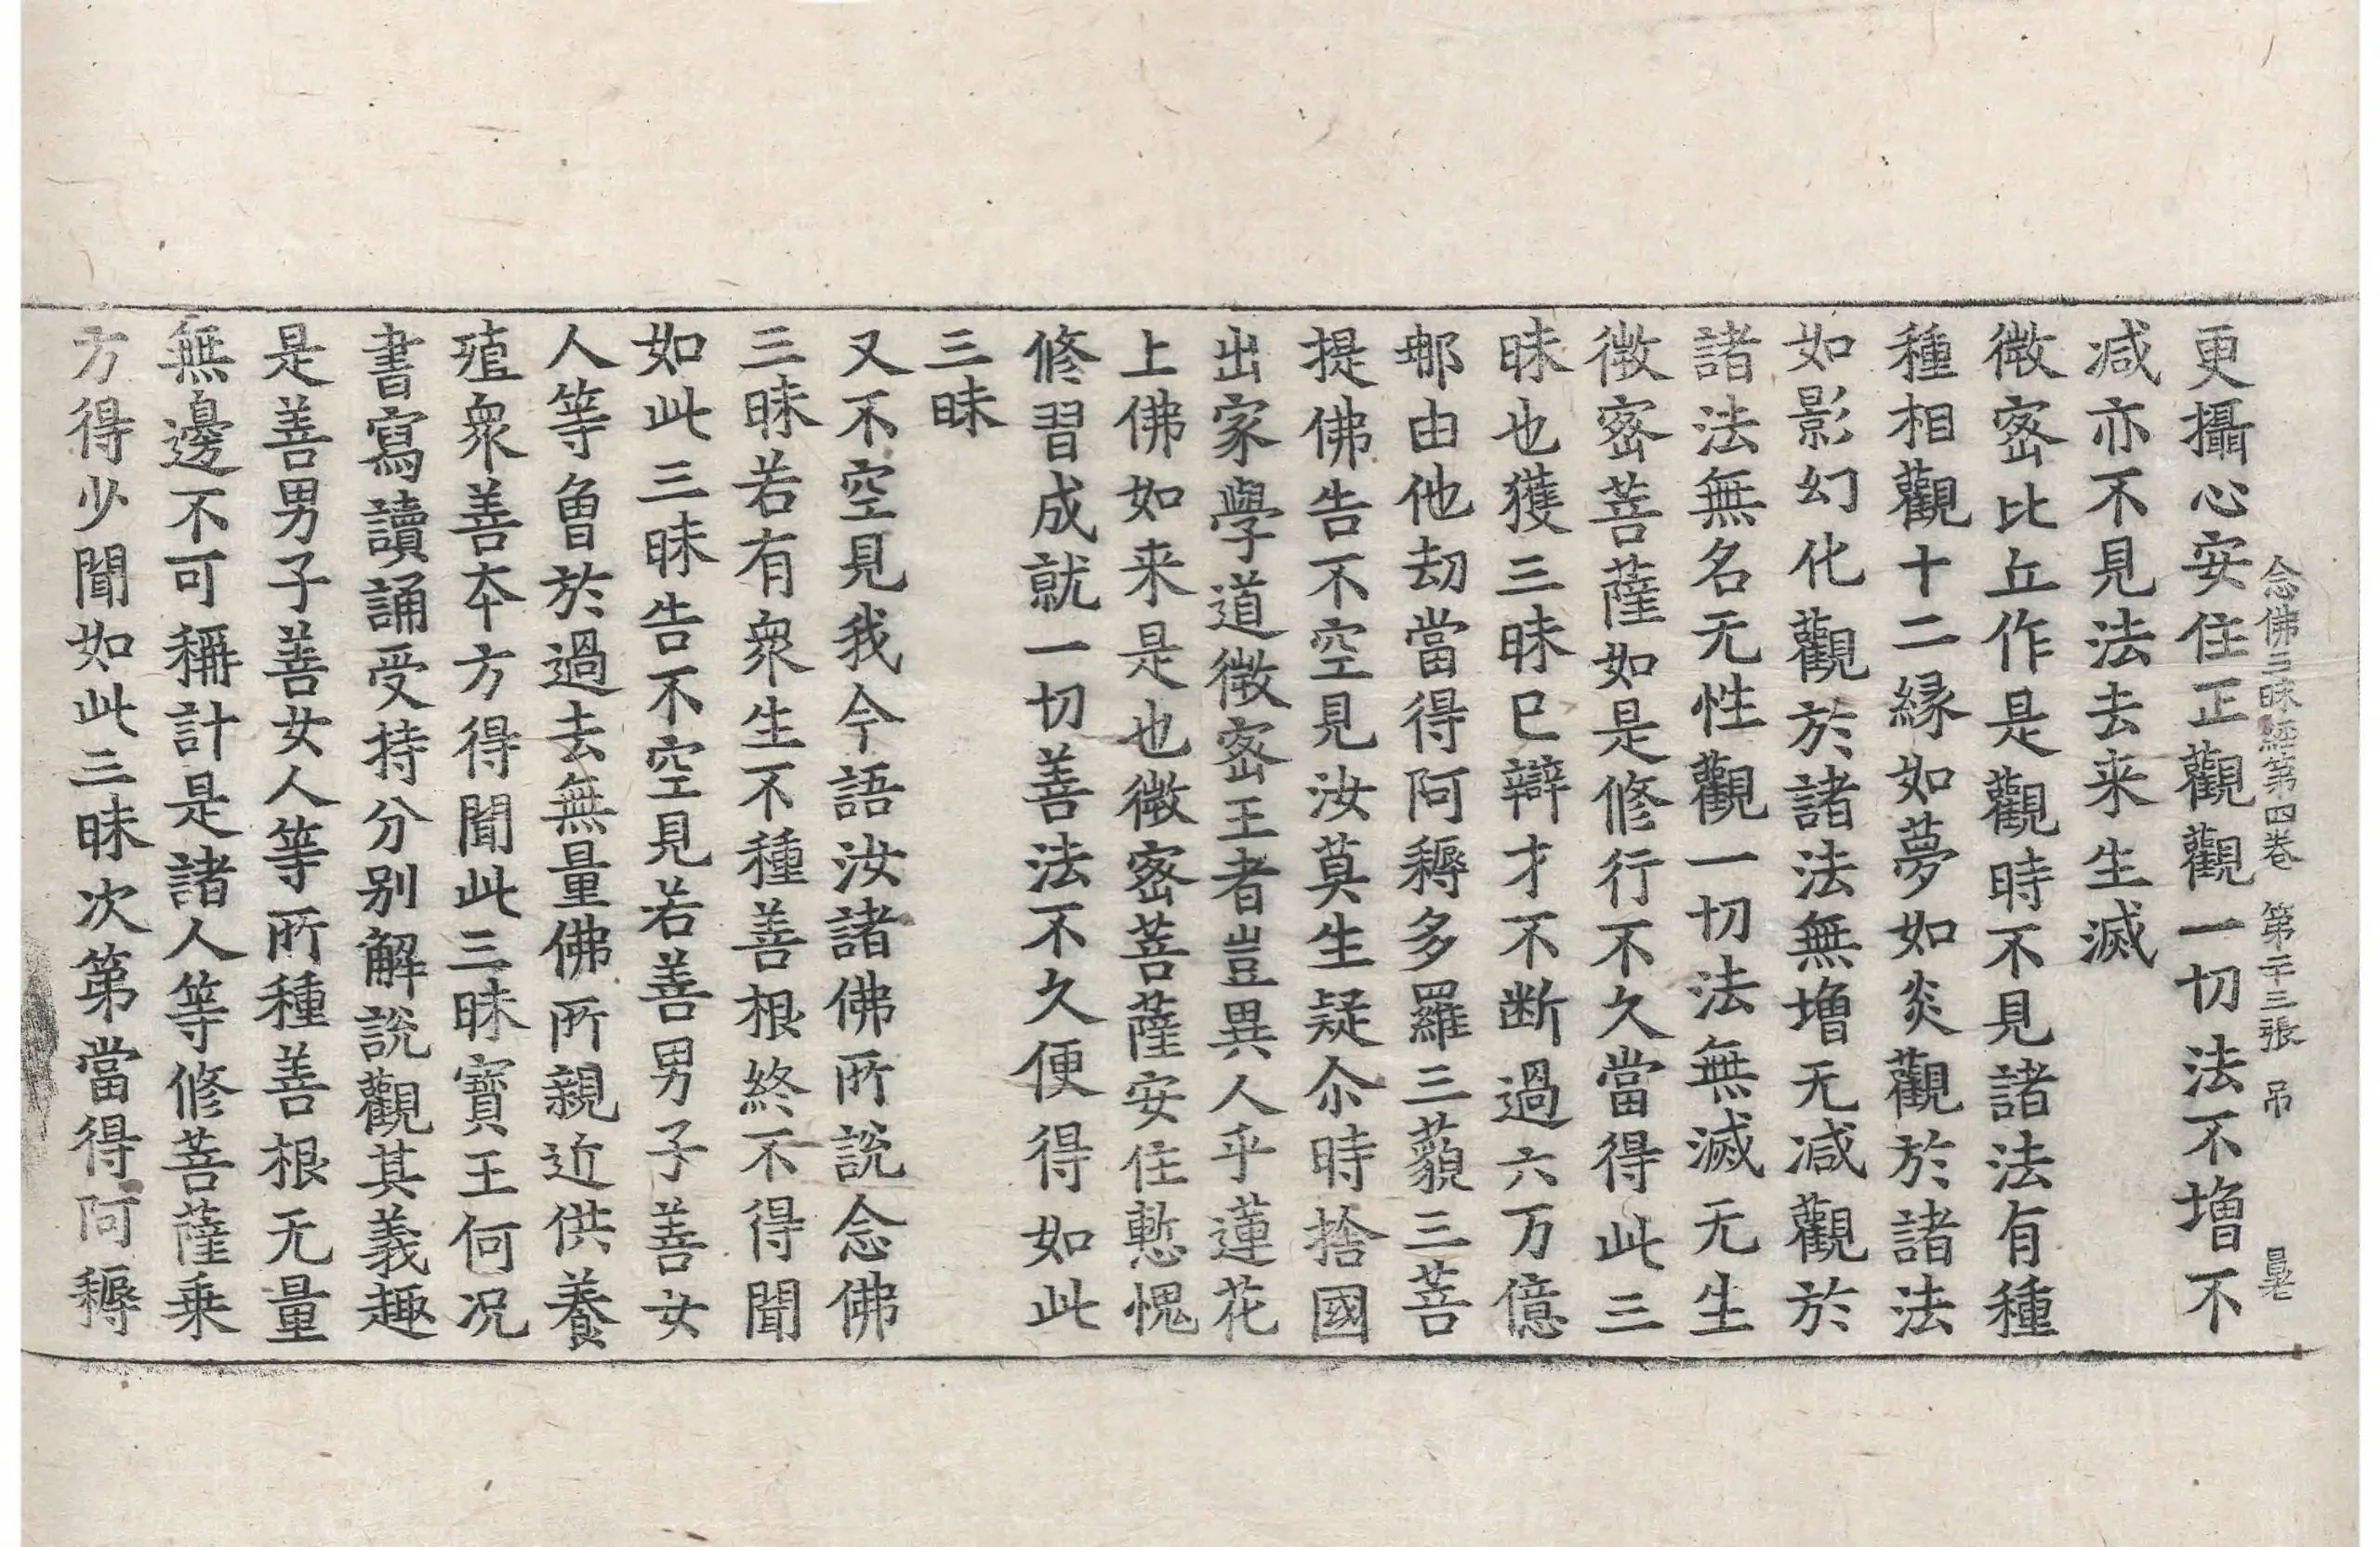 念佛三昧経第四卷 第二十三張 吊
更攝心安住正觀觀一切法不増不
减亦不見法去来生滅
微宻比丘作是觀時不見諸法有種
種相觀十二緣如夢如炎觀於諸法
如影幻化觀於諸法無増无减觀於
諸法無名无性觀一切法無滅无生
微宻菩薩如是修行不久當得此三
昧也獲三昧已辯才不断過六万億
那由他劫當得阿耨多羅三藐三菩
提佛告不空見汝莫生疑尒時捨國
出家學道微宻王者豈異人乎蓮花
上佛如来是也微宻菩薩安住慙愧
修習成就一切善法不久便得如此
三昧
又不空見我今語汝諸佛所說念佛
三昧若有衆生不種善根終不得聞
如此三昧告不空見若善男子善女
人等曾於過去無量佛所親近供養
殖衆善夲方得聞此三昧寶王何况
書寫讀誦受持分别解說觀其義趣
是善男子善女人等所種善根无量
無邊不可稱計是諸人等修菩薩乗
方得少聞如此三昧次第當得阿耨